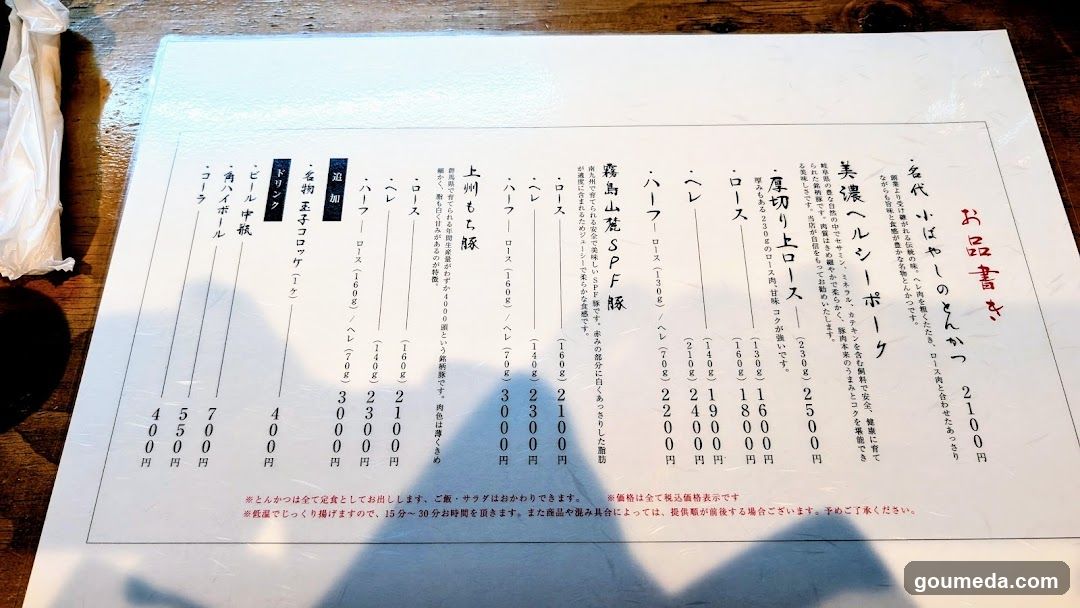 お品書き
・名代 小ばやしのとんかつ 2100円
創業より受け継がれる伝統の味。ヘレ肉を粗くたたき、ロース肉と合わせたあっさり
ながらも旨味と食感が豊かな名物とんかつです。
美濃ヘルシーポーク
岐阜県の豊な自然の中でセサミン、ミネラル、カテキンを含む飼料で安全、健康に育て
られた銘柄豚です。肉質はきめ細やかで柔らかく、豚肉本来のうまみとコクを堪能でき
る美味しさです。当店が自信をもってお勧めいたします。
厚切り上ロース (230g) 2500円
厚みもある230gのロース肉、甘味、コクが強いです。
・ロース (130g) 1600円
(160g) 1800円
・ヘレ (140g) 1900円
(210g) 2400円
・ハーフ ロース (130g) / ヘレ (70g) 2200円
霧島山麓SPF豚
南九州で育てられる安全で美味しいSPF豚です。赤みの部分に白くあっさりした脂肪
が適度に含まれるためジューシーで柔らかな食感です。
・ロース (160g) 2100円
・ヘレ (140g) 2300円
・ハーフ ロース (160g) / ヘレ (70g) 3000円
上州もち豚
群馬県で育てられる年間生産量がわずか4000頭という銘柄豚です。肉色は薄くきめ
細かく、脂も白く甘みがあるのが特徴
・ロース (160g) 2100円
・ヘレ (140g) 2300円
・ハーフ ロース (160g) / ヘレ (70g) 3000円
追加
・名物 玉子コロッケ (1ヶ) 400円
ドリンク
・ビール中瓶 700円
・角ハイボール 550円
・コーラ 400円
※とんかつは全て定食としてお出しします、ご飯・サラダはおかわりできます。 ※価格は全て税込価格表示です
※低温でじっくり揚げますので、15分～30分お時間を頂きます。また商品や混み具合によっては、提供順が前後する場合ございます。予めご了承ください。
goumeda.com